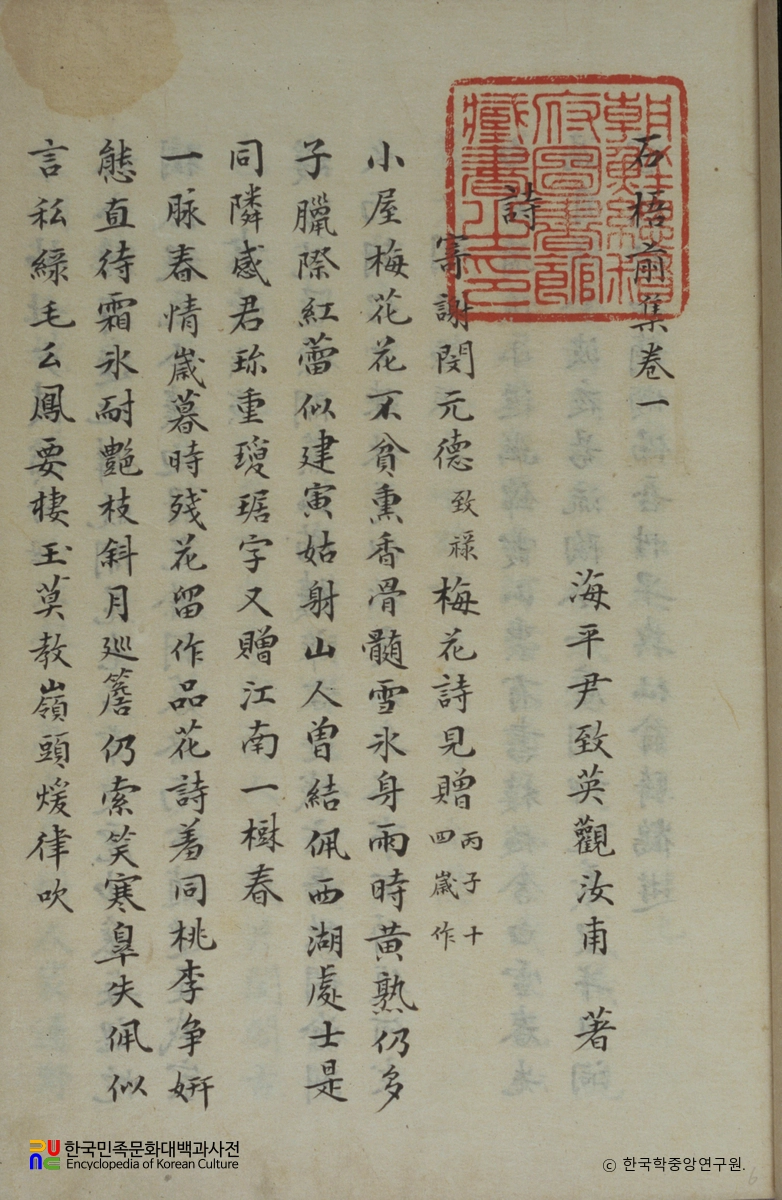 石梧前集卷一
海平尹致英觀汝甫 著
詩
寄謝閔元德致祿梅花詩見贈丙子十四歲作
小屋梅花花不貧熏香骨髓雪氷身雨時黃熟仍多
子臘際紅蕾似建寅姑射山人曾結佩西湖處士是
同隣感君珎重瓊琚字又贈江南一樹春
一脉春情歲暮時殘花留作品花詩羞同桃李爭姸
態直待霜氷耐艶枝斜月廵簷仍索笑寒皐失佩似
言私綠毛么鳳要棲玉莫敎嶺頭煖律吹
朝鮮總督府圖書館藏書之印
한국민족문화대백과사전
Encyclopedia of Korean Culture
ⓒ 한국학중앙연구원.